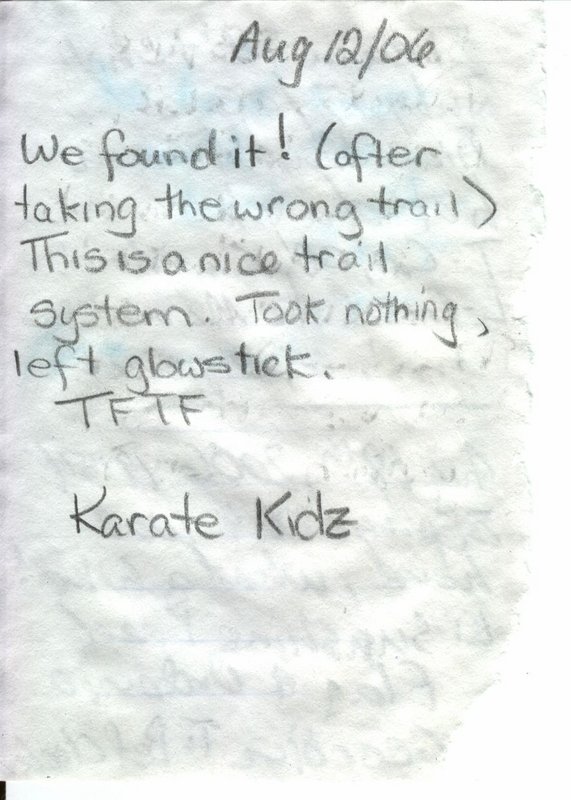 Aug 12/06
We found it! (after
taking the wrong trail)
This is a nice trail
system. Took nothing,
left glowstick.
TFTF
Karate Kidz